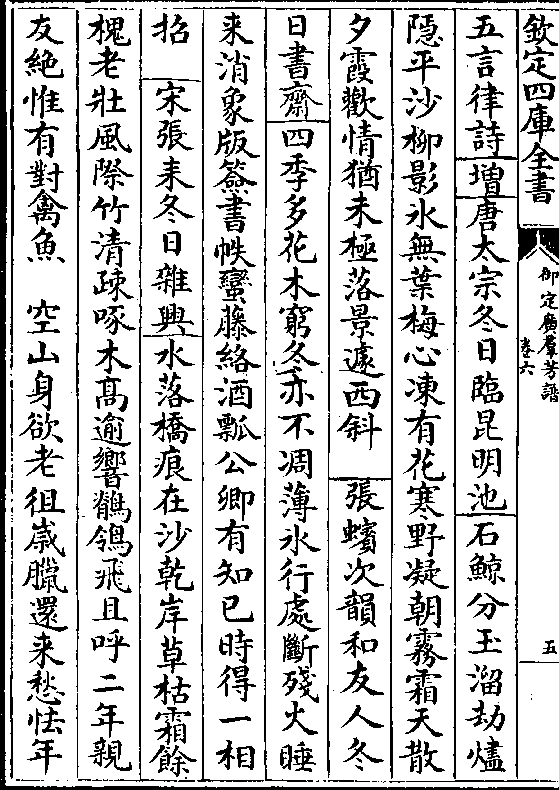 欽定四庫全書
御定廣羣芳譜
卷六
五
五言律詩增唐太宗冬日臨昆明池石鯨分玉溜劫燼
隱平沙柳影氷無葉梅心凍有花寒野凝朝霧霜天散
夕霞歡情猶未極落景遽西斜 張蠙次韻和友人冬
日書齋四季多花木窮冬亦不凋薄氷行處斷殘火睡
来消象版簽書帙蠻藤絡酒瓢公卿有知已時得一相
招 宋張耒冬日雜興水落橋痕在沙乾岸草枯霜餘
槐老壯風際竹清疎啄木髙逾響鵲鴒飛且呼二年親
友絶惟有對禽魚 空山身欲老徂歳臘還来愁怯年